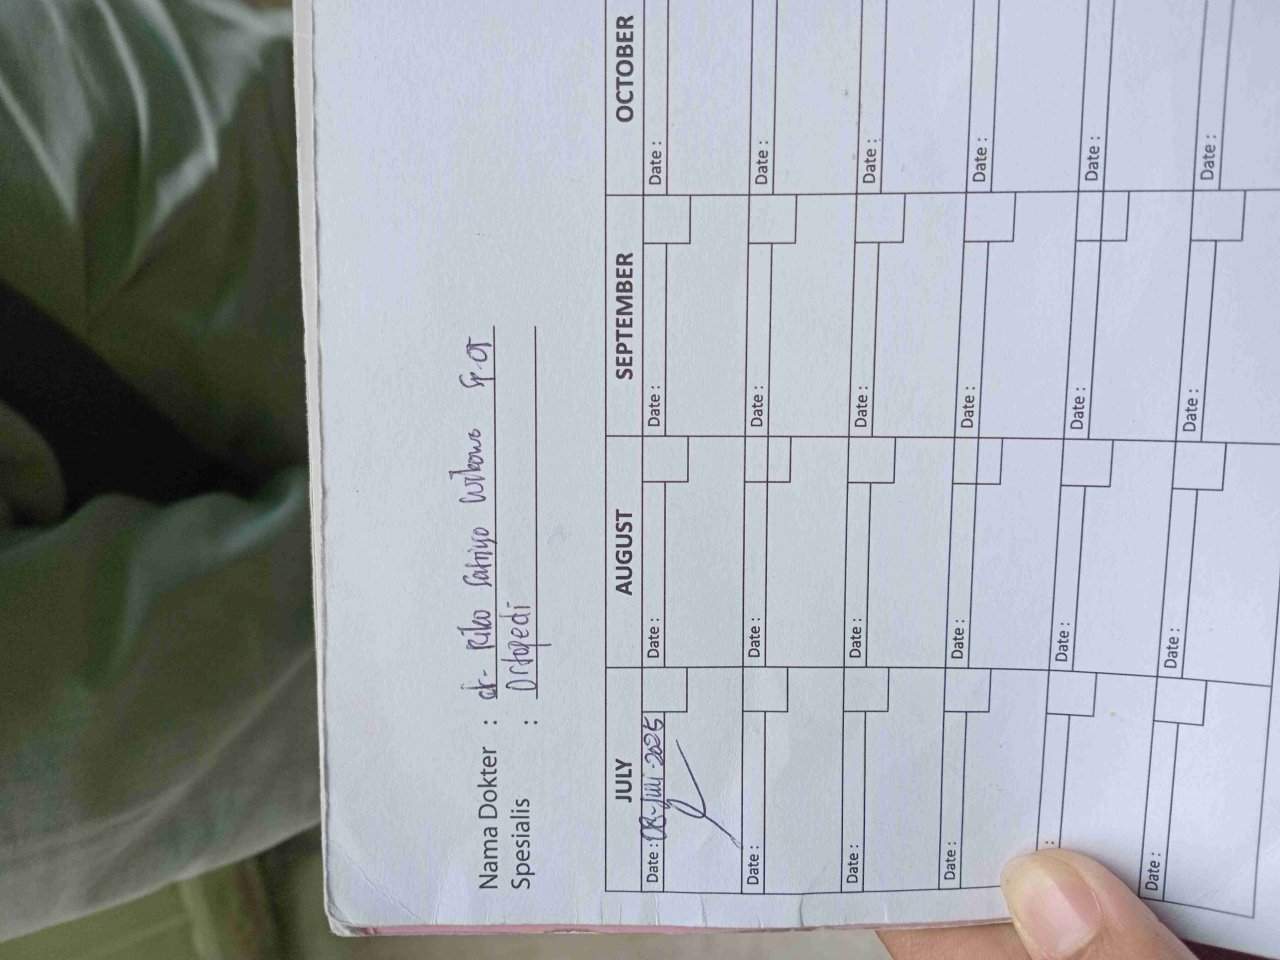 Nama Dokter : dr. Riko Satriyo Wibowo Sp.OT
Spesialis : Ortopedi
JULY AUGUST SEPTEMBER OCTOBER
Date : 08-Juli-2025 Date : Date : Date :
Date : Date : Date : Date :
Date : Date : Date : Date :
Date : Date : Date : Date :
: Date : Date : Date :
Date : Date : Date : Date :